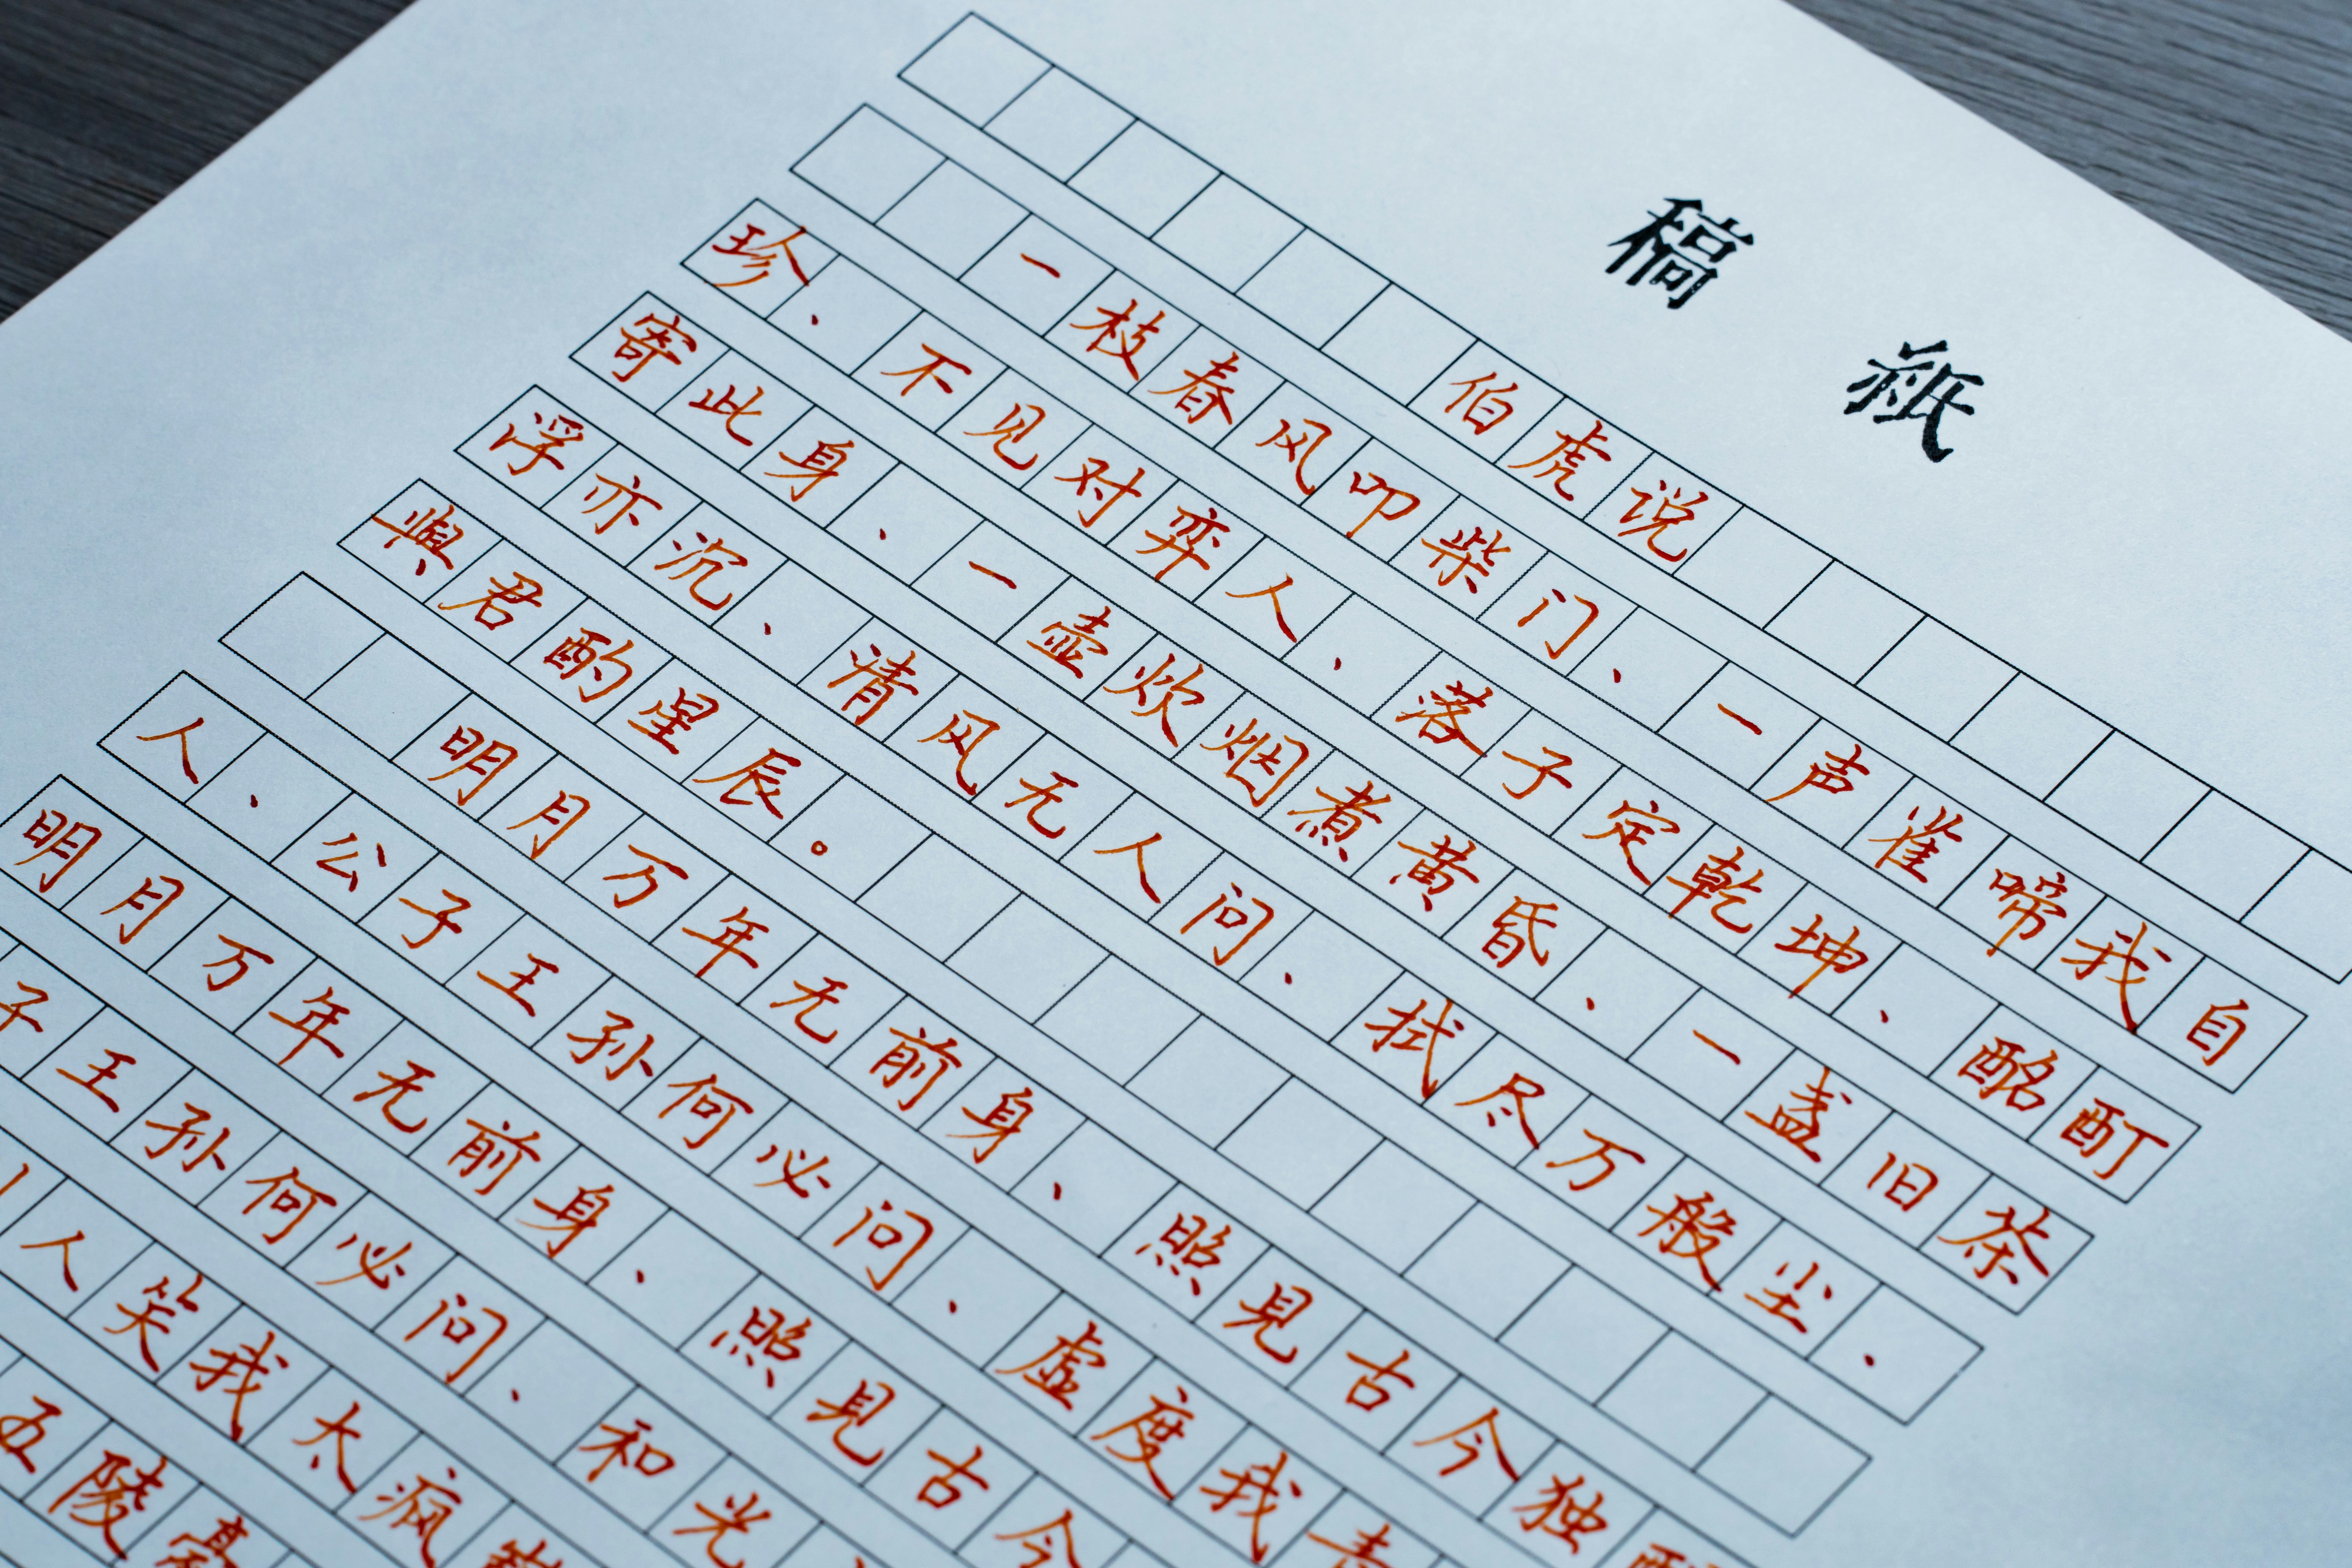 稿紙
伯虎说
一枝春风叩柴门、一声雀啼我自
珍、不见对弈人、落子定乾坤、酩酊
寄此身、一壶炊烟煮黄昏、一盏旧茶
浮亦沉、清风无人问、拭尽万般尘、
與君酌星辰。
明月万年无前身、照見古今独
人、公子王孙何必问、虚度我青
明月万年无前身、照見古今
子王孙何必问、和光
人笑我太疯
五陵豪